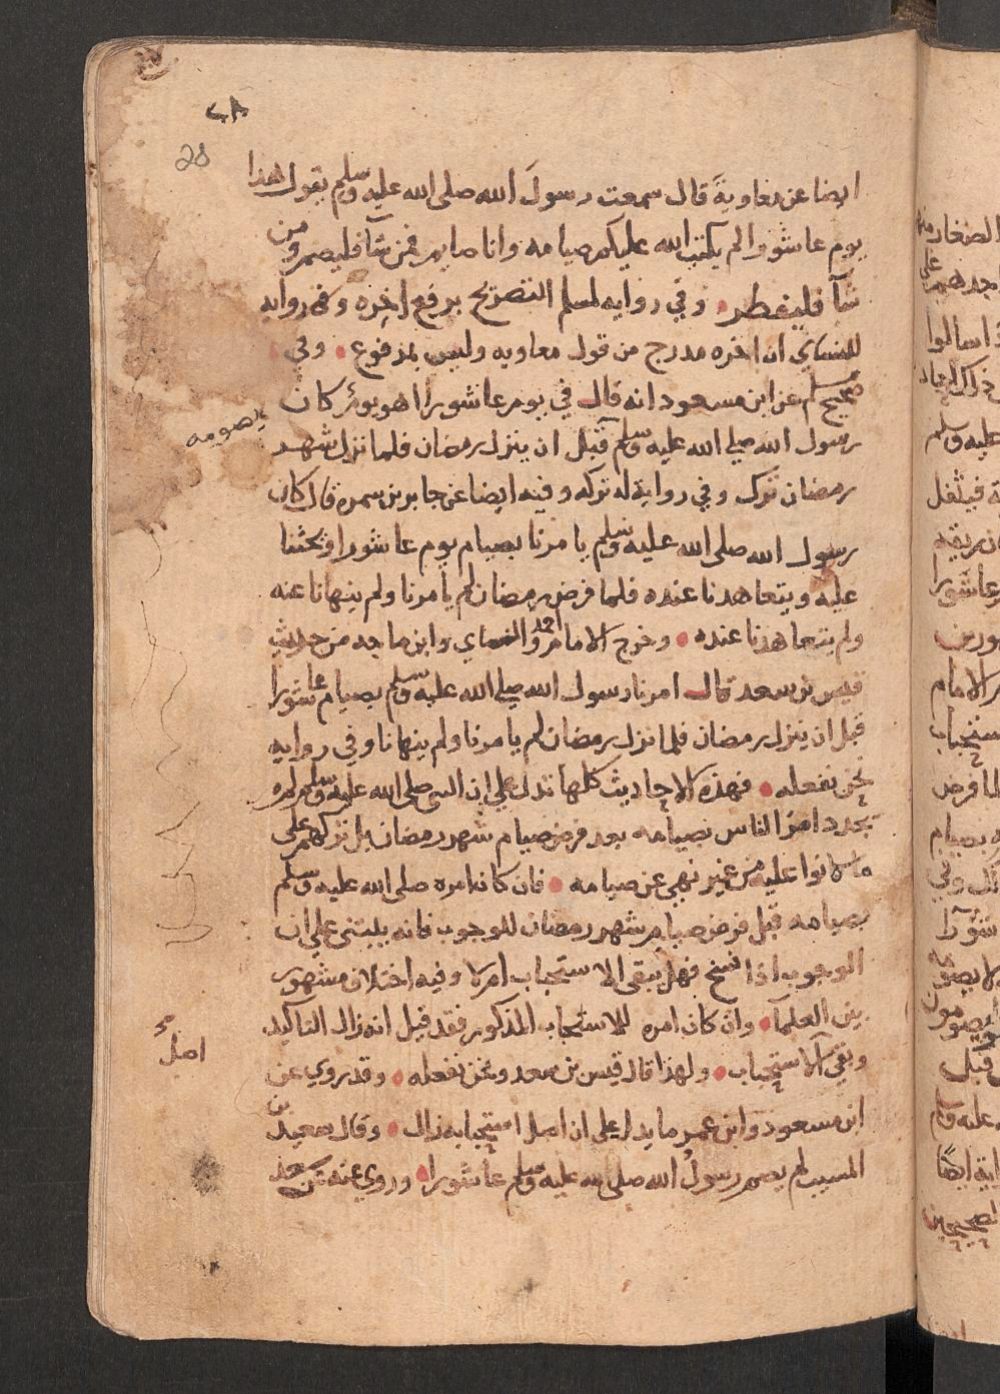 ٢٨
28
ايضا عن معاوية قال سمعت رسول الله صلى الله عليه وسلم يقول هذا
يوم عاشورا لم يكتب الله عليكم صيامه وانا صايم فمن شآ فليصم ومن
شآ فليفطر وفي روايه لمسلم التصريح برفع اخره وفي روايه
للنساي ان اخره مدرج من قول معاويه وليس بمرفوع وفي
صحيح مسلم عن ابن مسعود انه قال في يوم عاشورا هو يوم كان
يصومه
رسول الله صلي الله عليه وسلم قبل ان ينزل رمضان فلما نزل شهر
رمضان ترك وفي رواية له تركه وفيه ايضا عن جابر بن سمره قال كان
رسول الله صلى الله عليه وسلم يامرنا بصيام يوم عاشورا ويحثنا
عليه ويتعاهدنا عنده فلما فرض رمضان لم يامرنا ولم ينهانا عنه
ولم يتعاهدنا عنده وخرج الامام احمد والنساي وابن ماجه من حديث
قيس بن سعد قال امرنا رسول الله صلي الله عليه وسلم بصيام عاشورا
قبل ان ينزل رمضان فلما نزل رمضان لم يامرنا ولم ينهانا وفي روايه
نحن نفعله فهذه الاحاديث كلها تدل علي ان النبي صلى الله عليه وسلم لم
يجدد امر الناس بصيامه بعد فرض صيام شهر رمضان بل تركهم على
ما كانوا عليه من غير نهي عن صيامه فان كان امره صلى الله عليه وسلم
بصيامه قبل فرض صيام شهر رمضان للوجوب فانه يبتني علي ان
الوجوب اذا نسخ فهل يبقى الاستحباب ام لا وفيه اختلاف مشهور
بين العلمآ وان كان امره للاستحباب المذكور فقد قيل انه زال التاكيد
وبقي اصل الاستحباب ولهذا قال قيس بن سعد ونحن نفعله وقد روي عن
ابن مسعود وابن عمر ما يدل علي ان اصل استحبابه زال وقال سعيد بن
المسيب لم يصم رسول الله صلى الله عليه وسلم عاشورا وروي عنه عن سعد